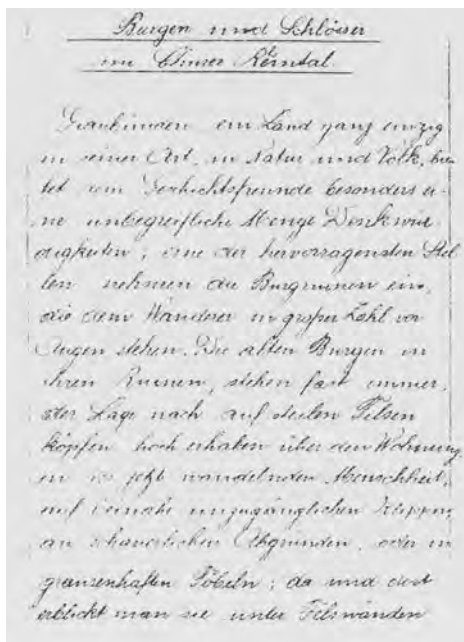 Burgen und Schlösser
im Churer Rheintal.
Graubünden ein Land ganz einzig
in seiner Art, in Natur und Volk, bie-
tet dem Geschichtsfreunde besonders ei-
ne unbegreifliche Menge Denkwür-
digkeiten; eine der hervorragensten Stel-
len nehmen die Burgruinen ein,
die dem Wanderer in großer Zahl vor
Augen stehen. Die alten Burgen in
ihren Ruinen, stehen fast immer,
der Lage nach auf steilen Felsen
köpfen hoch erhaben über den Wohnung
en der jetzt wandelnden Menschheit,
auf beinahe unzugänglichen Klippen,
an schauerlichen Abgründen, oder in
grausenhaften Töbeln; da und dort
erblickt man sie unter Felswänden